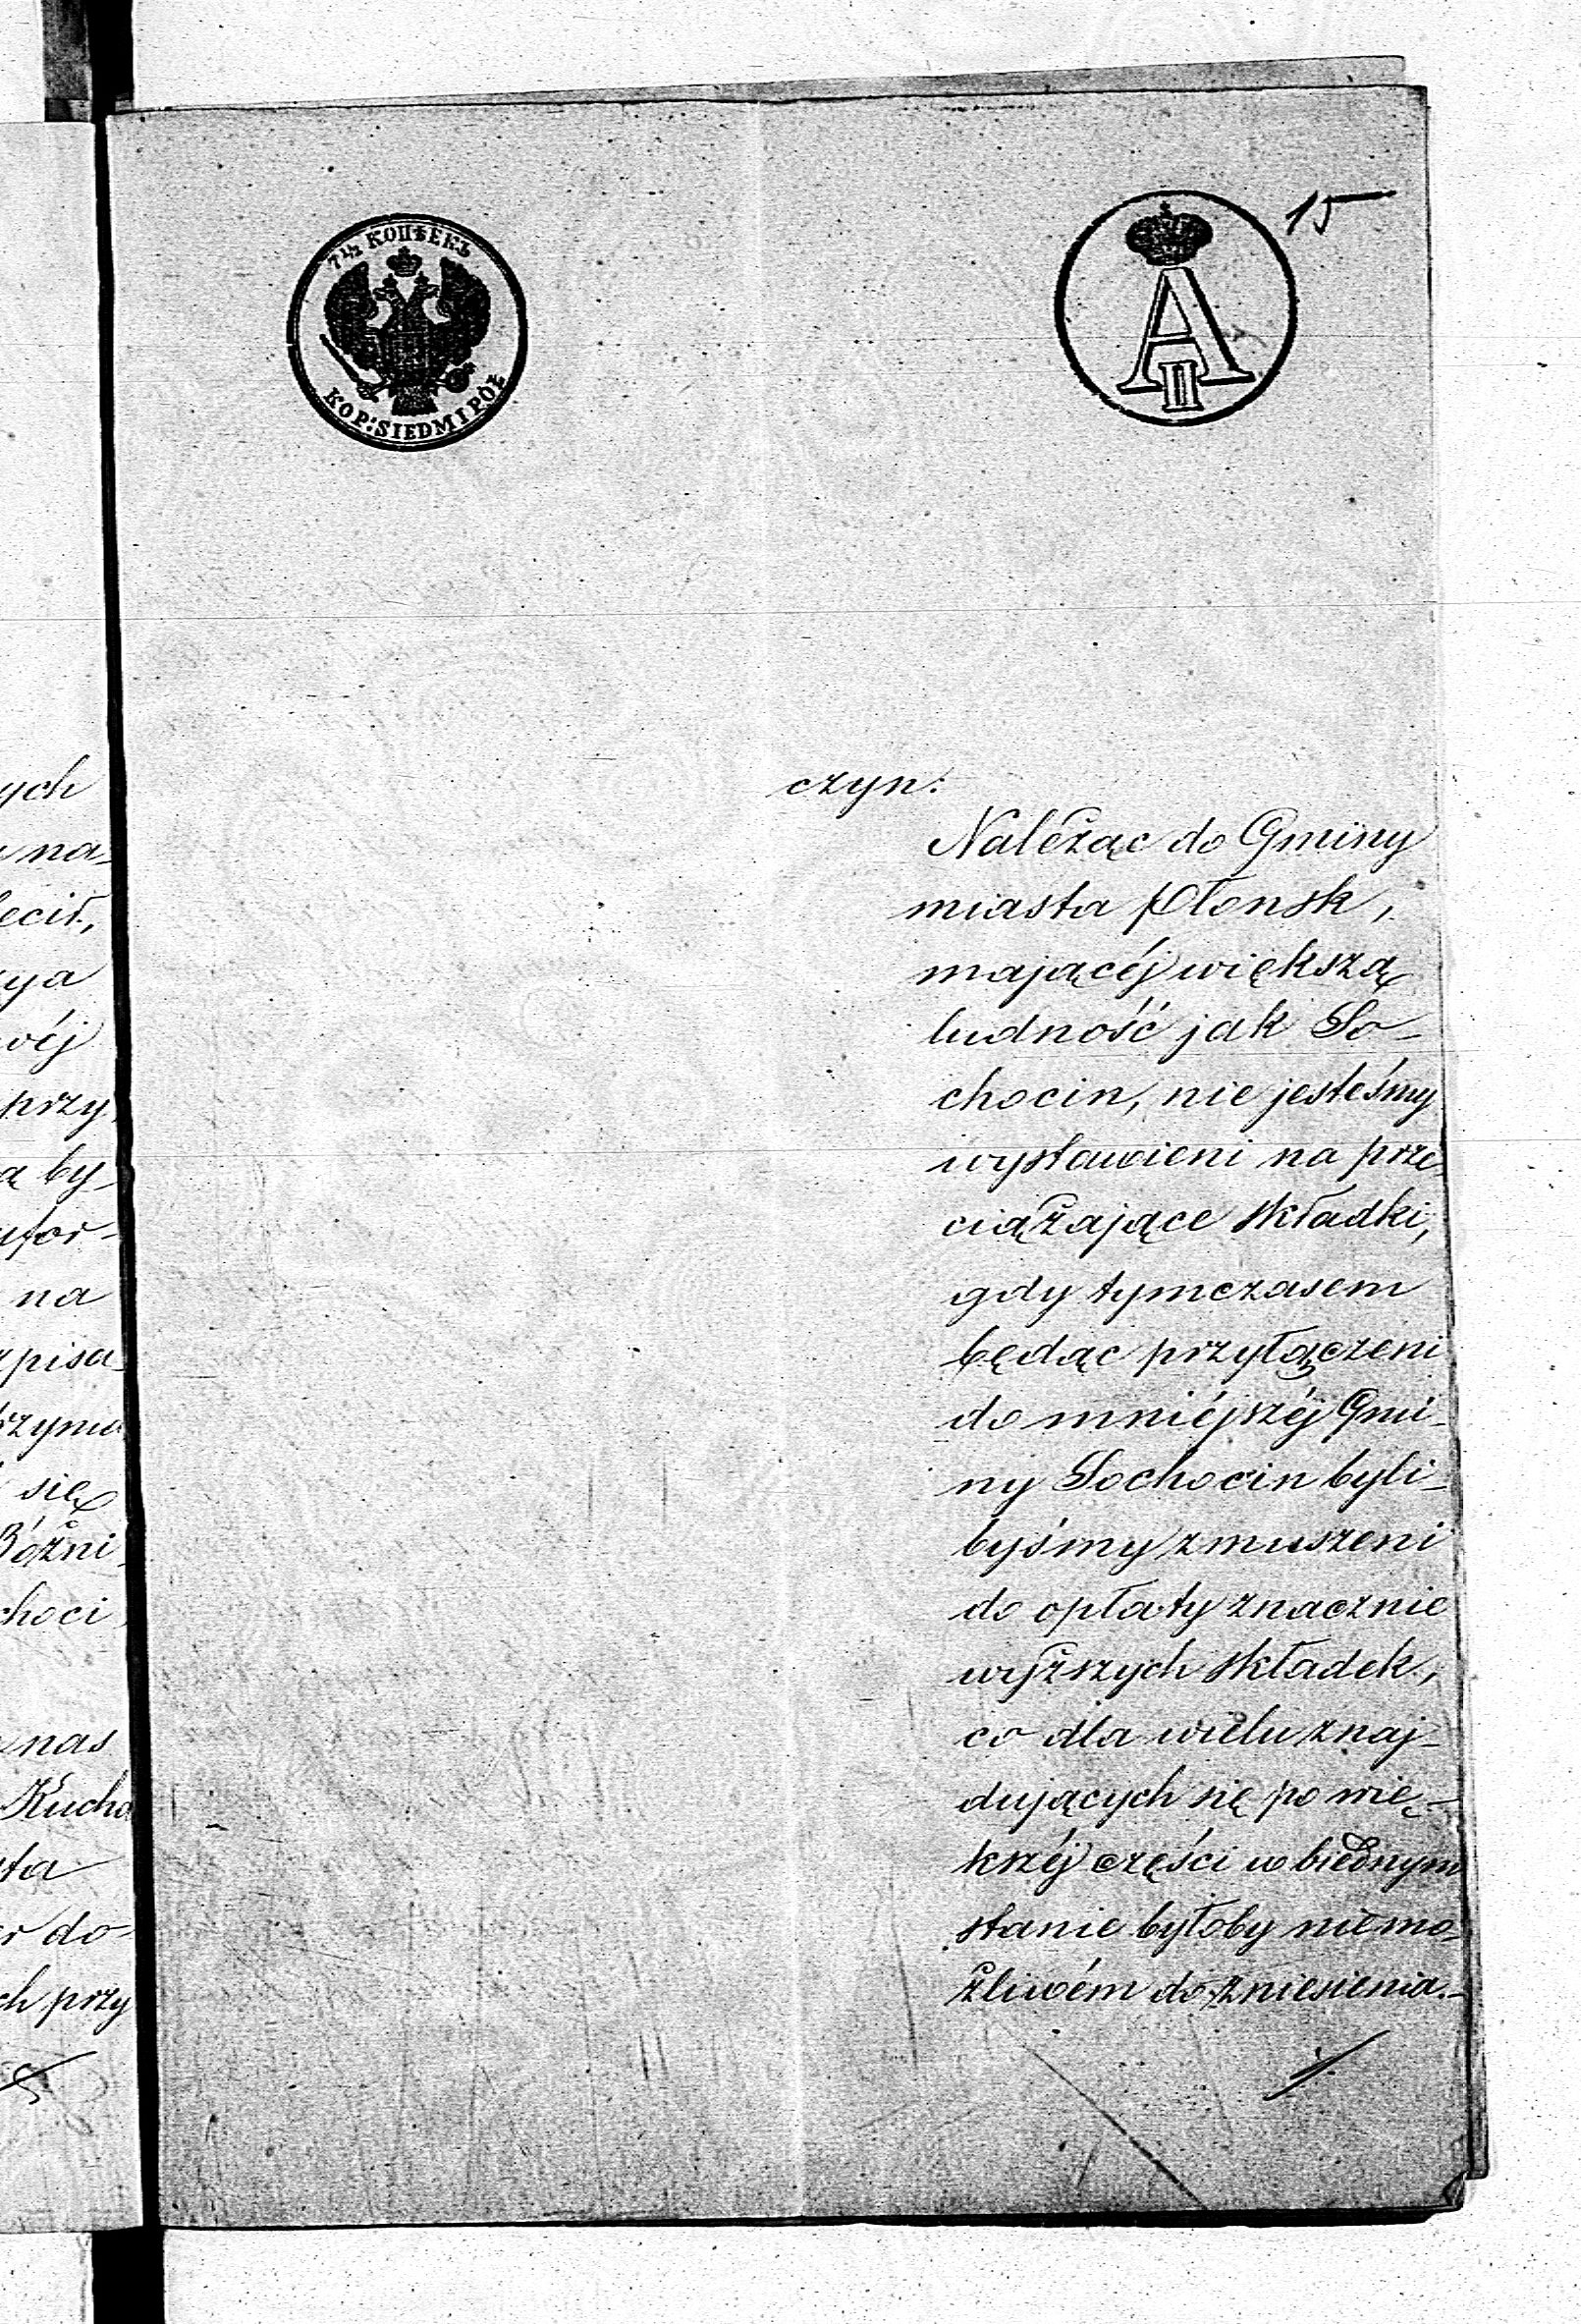 15
7 1/2 КОПѢЕКЪ
KOP: SIEDM I PÓŁ
A
II
czyn:
Należąc do Gminy
miasta Płonsk,
mającéj większą
ludność jak So-
chocin, nie jesteśmy
wystawieni na prze-
ciążające składki,
gdy tymczasem
będąc przyłączeni
do mniéjszéj Gmi-
ny Sochocin byli-
byśmy zmuszeni
do opłaty znacznie
wyższych składek,
co dla wielu znaj-
dujących się po wię-
kszéj części w biednym
stanie byłoby niemo-
żliwém do zniesienia.-
ych
na-
ecił,
ya
wéj
przy
ą by-
for-
na
pisa-
rzyma
się
Bóżni
choci
nas
Kucha
ta
r do-
ch przy